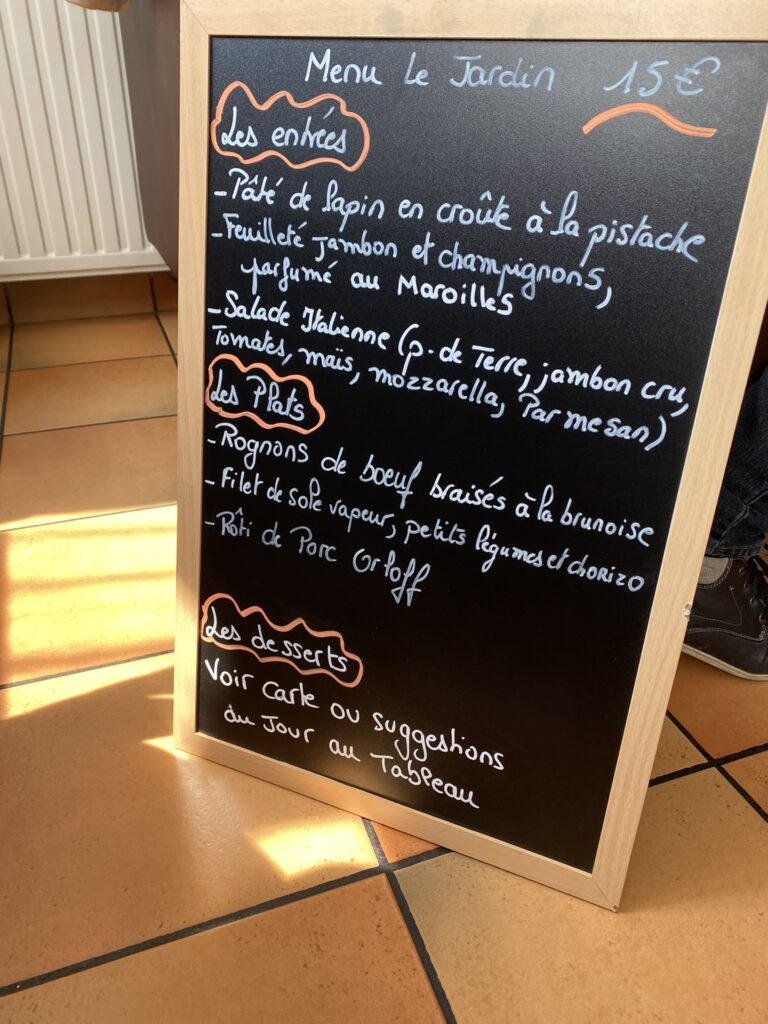 Menu Le Jardin 15€
Les entrées
- Pâté de lapin en croûte à la pistache
- Feuilleté jambon et champignons,
parfumé au Maroilles
- Salade Italienne (p. de Terre, jambon cru,
Tomates, maïs, mozzarella, Parmesan)
Les Plats
- Rognons de boeuf braisés à la brunoise
- Filet de sole vapeur, petits légumes et chorizo
- Rôti de Porc Orloff
Les desserts
Voir carte ou suggestions
du Jour au Tableau